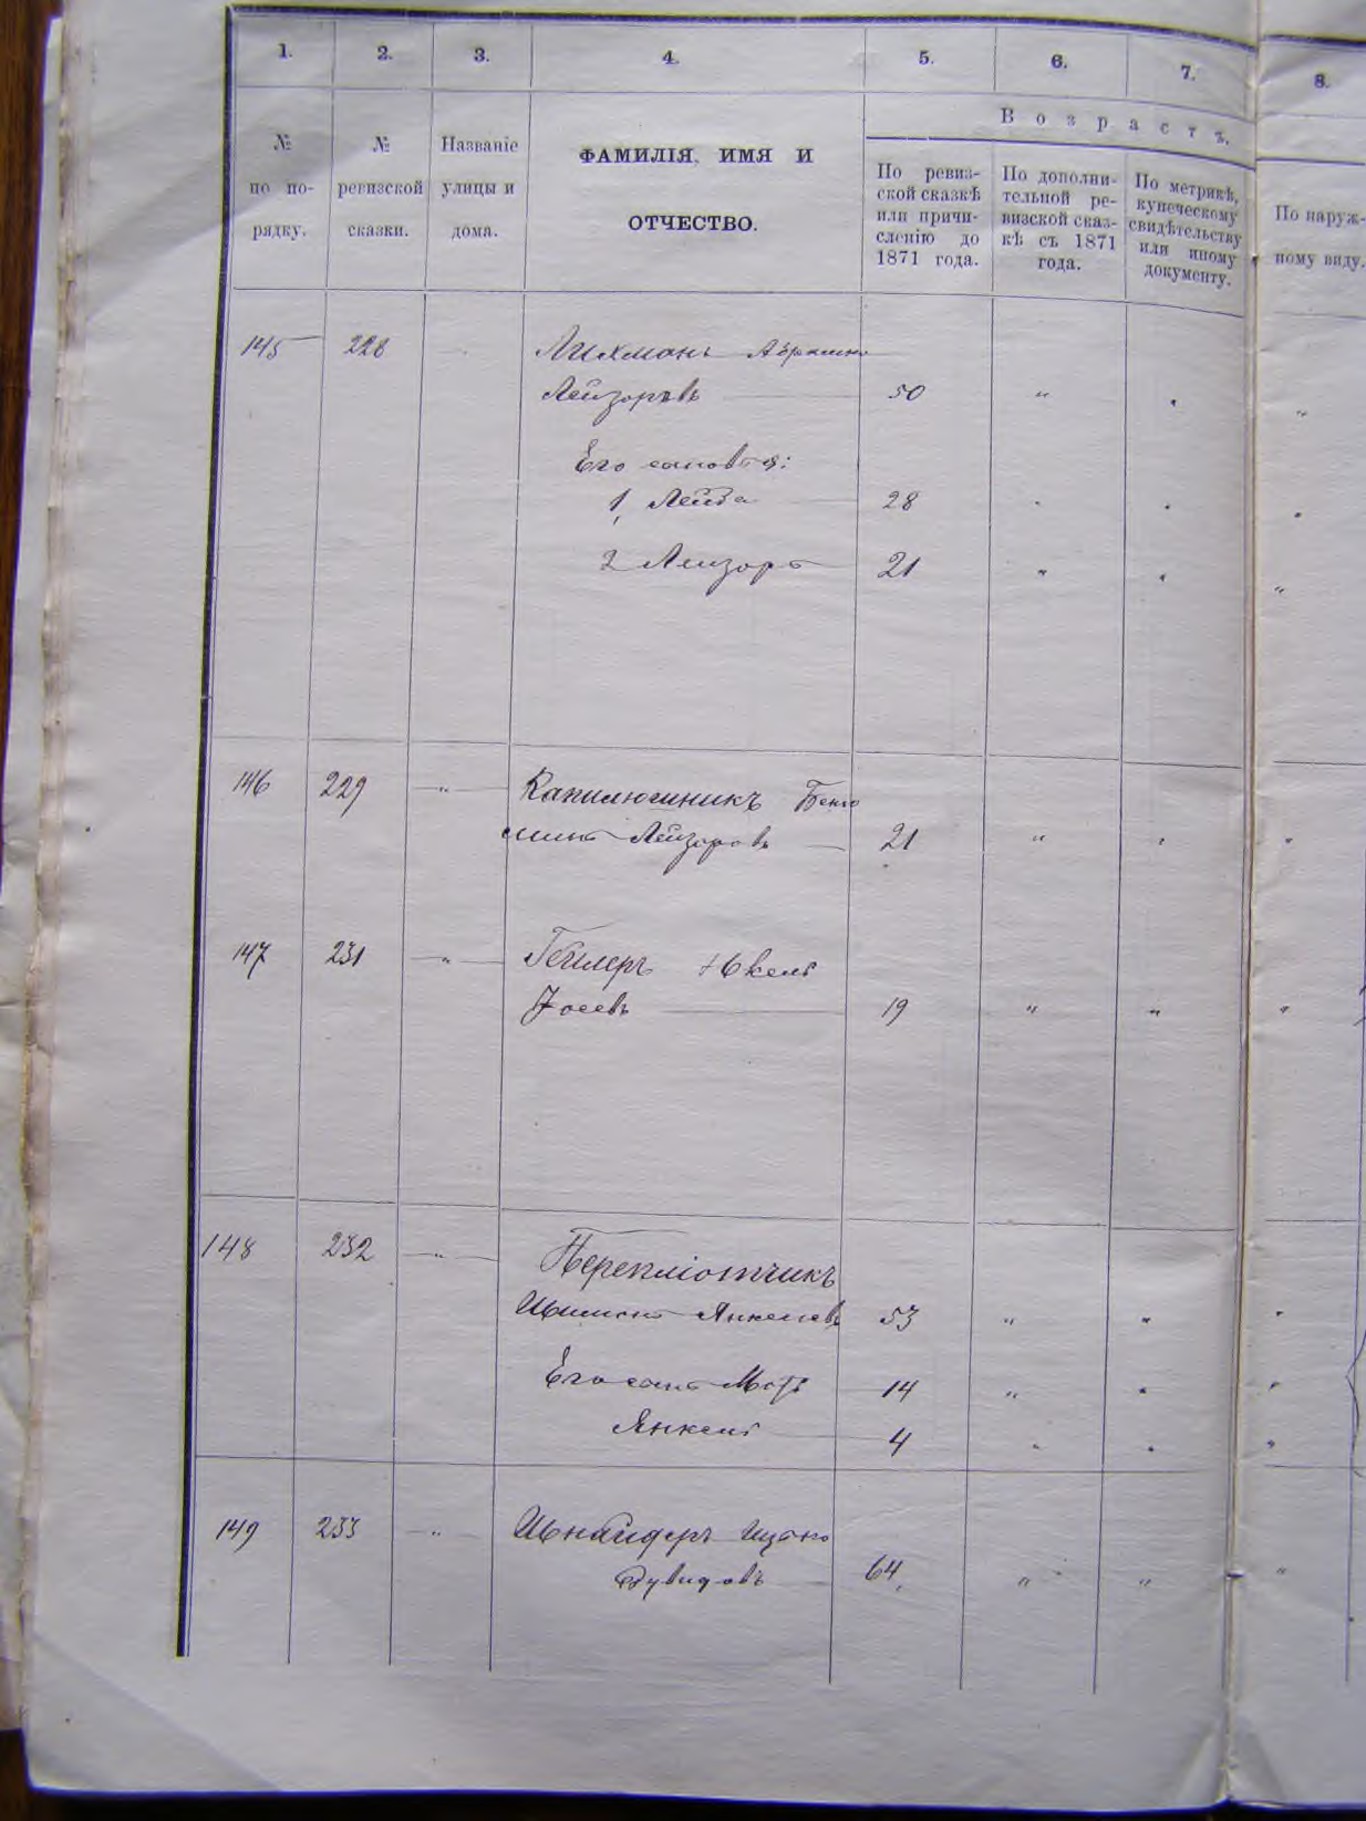 1. 2. 3. 4. 5. 6. 7. 8.
Возрастъ.
№ по порядку.
№ ревизской сказки.
Названіе улицы и дома.
ФАМИЛІЯ, ИМЯ И
ОТЧЕСТВО.
По ревиз-
ской сказкѣ
или причи-
сленію до
1871 года.
По дополни-
тельной ре-
визской сказ-
кѣ съ 1871
года.
По метрикѣ,
купеческому
свидѣтельству
или иному
документу.
По наруж-
ному виду.
145 228 Абрамъ
Лейзоровъ 50 " " "
Его сыновья:
1, Лейба 28 " " "
2 Лейзоръ 21 " " "
146 229 — " — Капилюшникъ Беню
минъ Лейзоровъ 21 " " "
147 231 — " — Геллеръ
Іосевъ 19 " " "
148 232 — " — Переплютчикъ
Шимонъ Янкелевъ 53 " " "
Его сынъ 14 " " "
Янкель 4 " " "
149 233 — " — Шнайдеръ Ицко
Дувидовъ 64 " " "